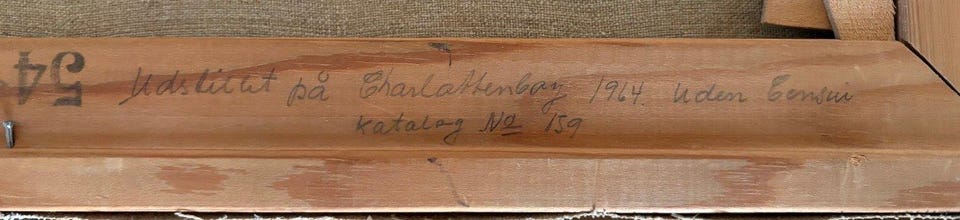 54
Udstillet på Charlottenborg 1964. uden Censur
Katalog No 159